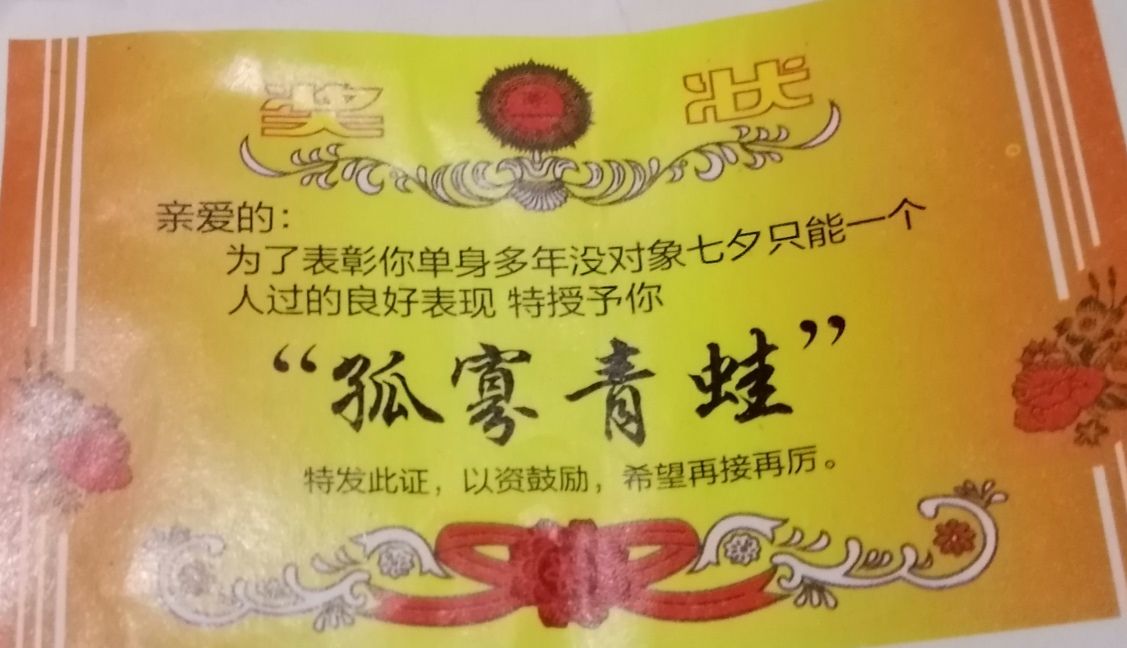 奖 状
亲爱的：
为了表彰你单身多年没对象七夕只能一个
人过的良好表现 特授予你
“孤寡青蛙”
特发此证，以资鼓励，希望再接再厉。